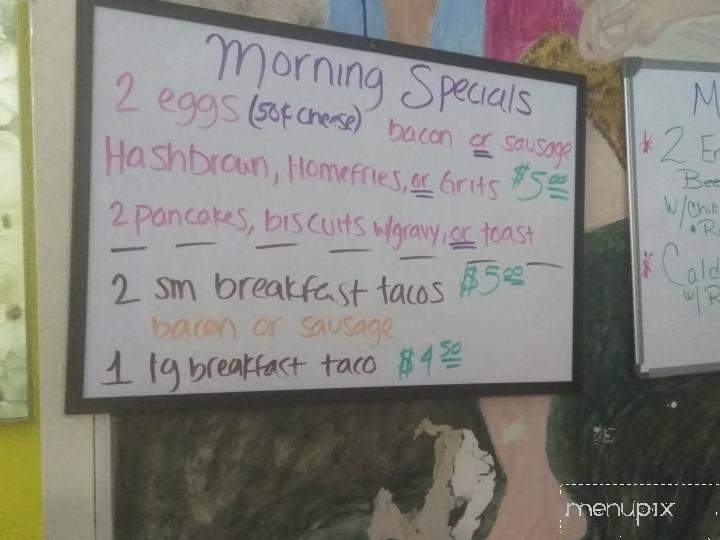 Morning Specials
2 eggs (50¢ cheese) bacon or sausage
Hashbrown, Homefries, or Grits $5.00
2 pancakes, biscuits w/gravy, or toast
2 sm breakfast tacos $5.00
bacon or sausage
1 lg breakfast taco $4.50
M
* 2 En
Bee
w/chili
* R
* Cald
w/ R
menupix